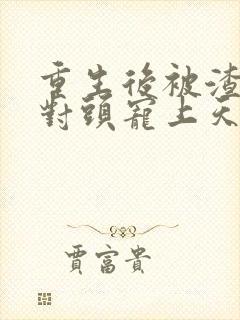 重生後被渣
對頭寵上天
賈富貴